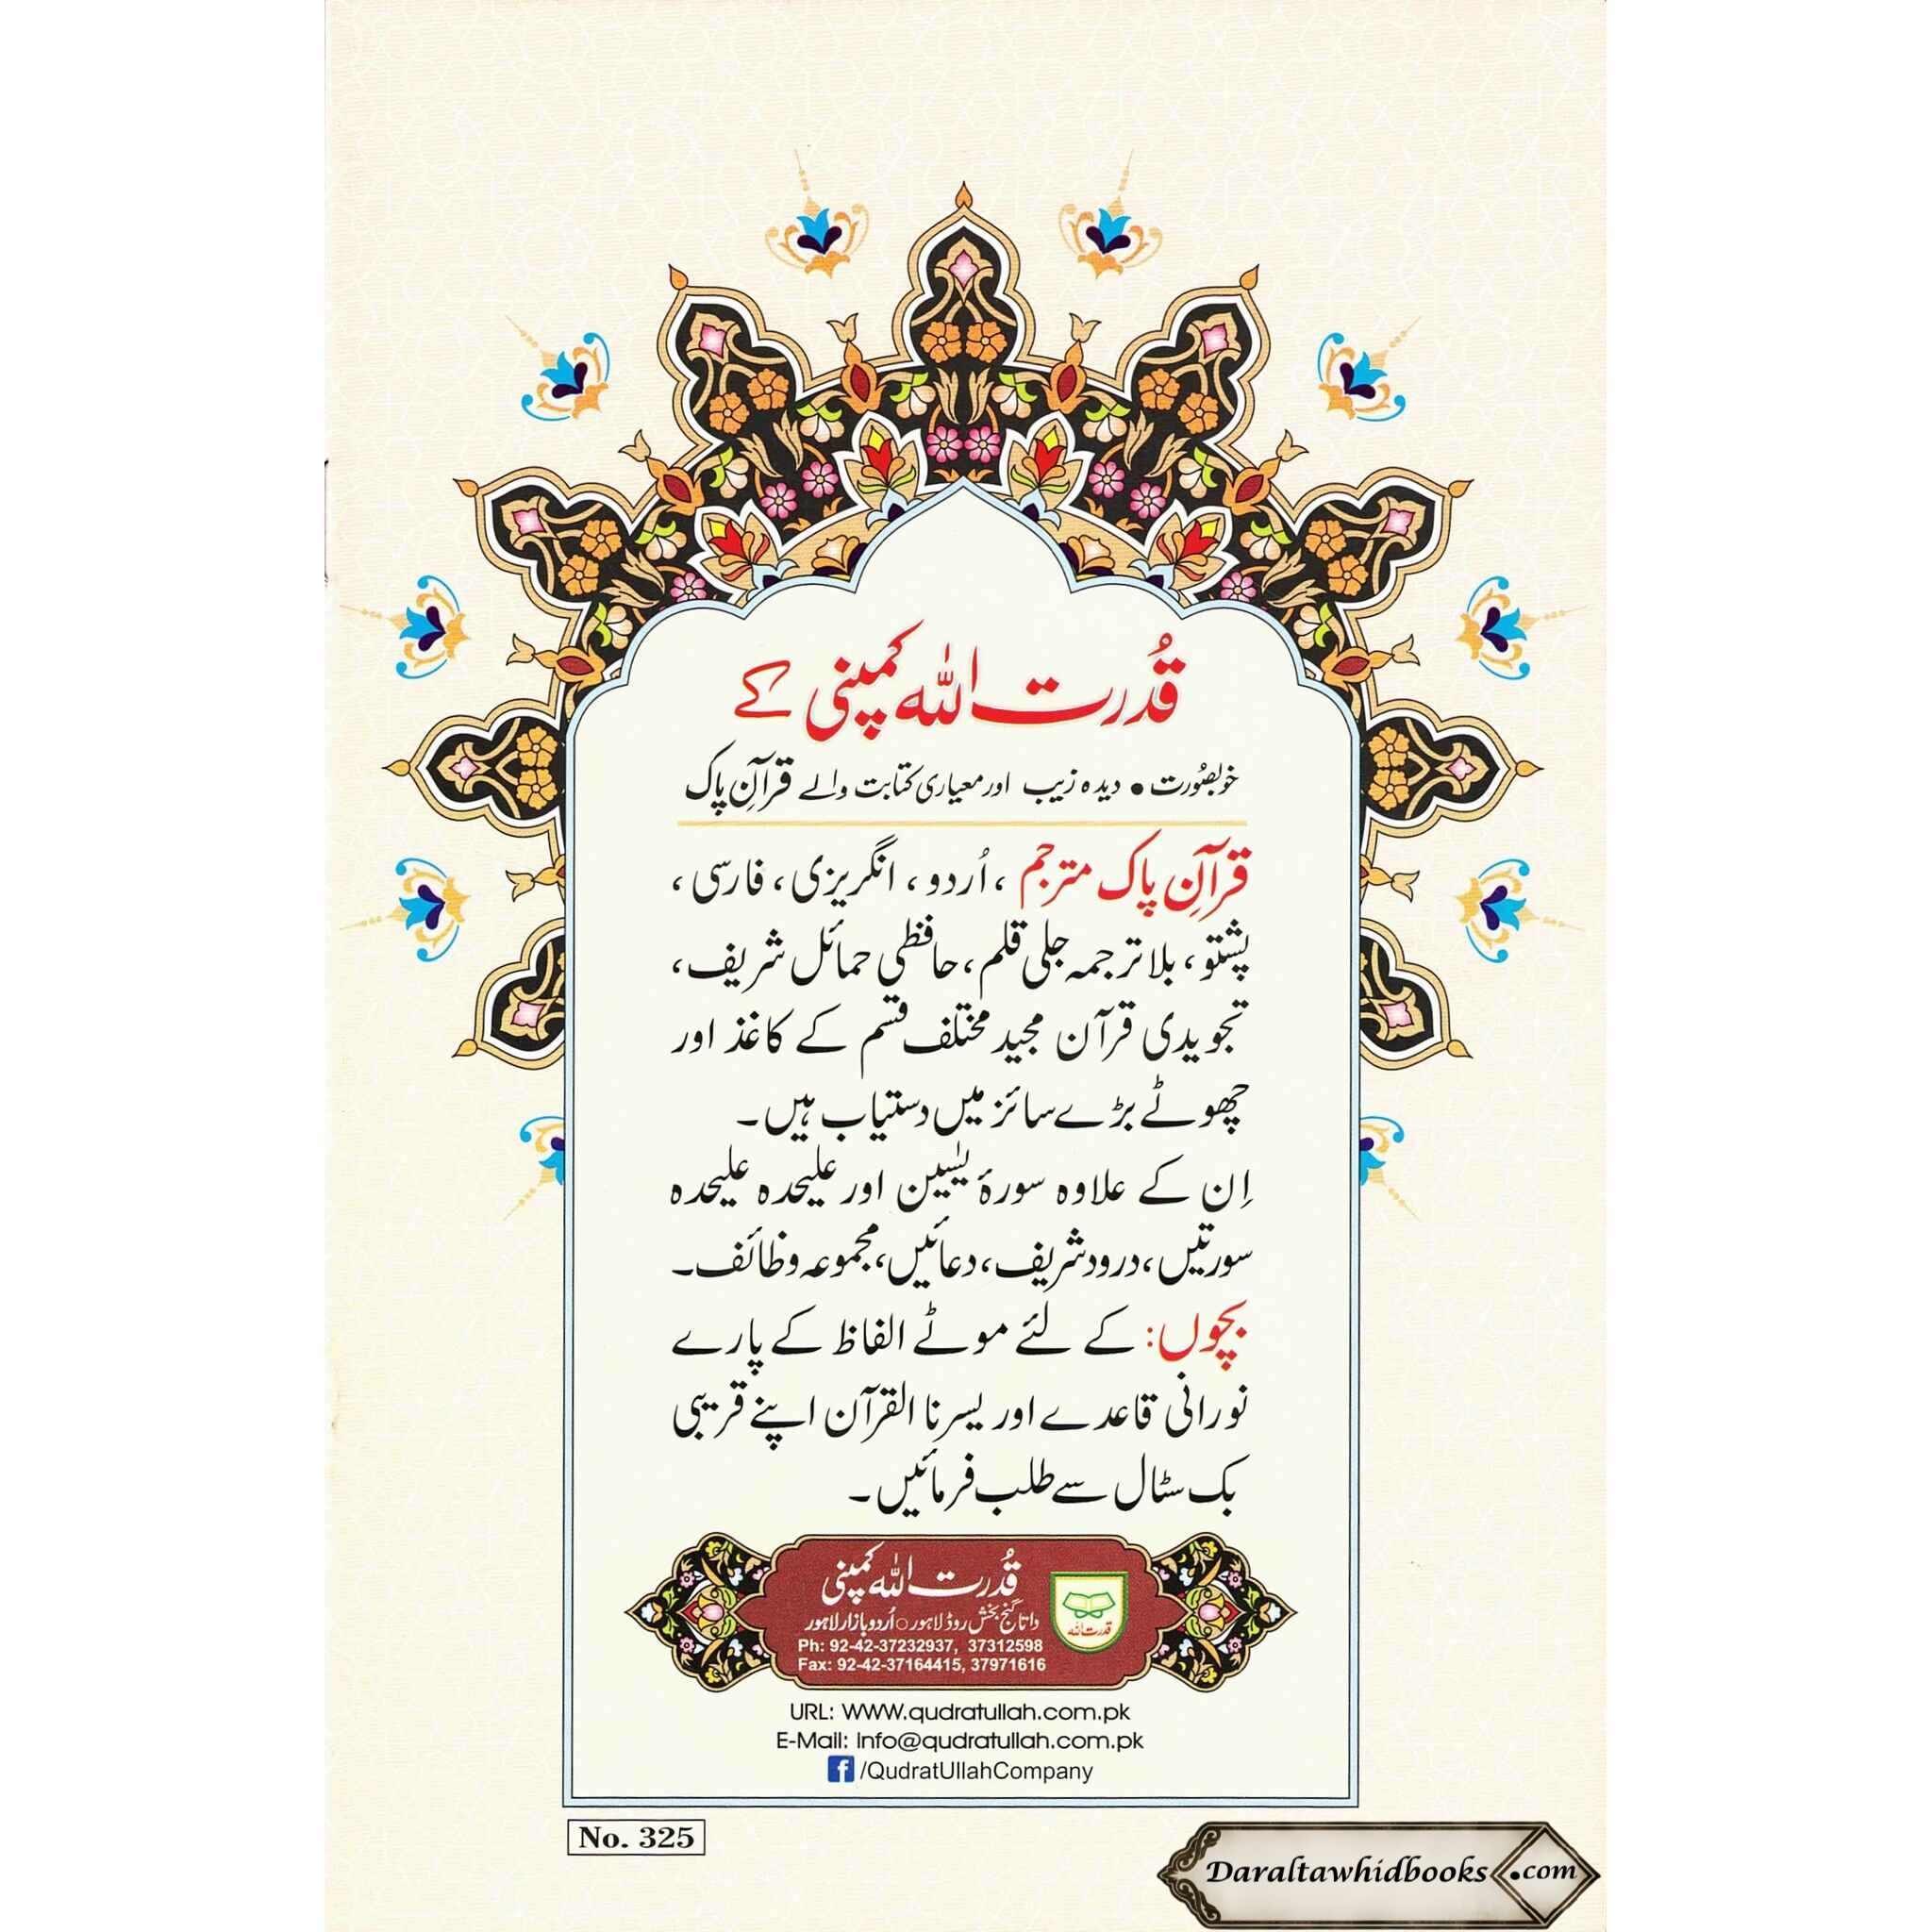 قُدرت اللہ کمپنی کے
خوبصُورت • دیدہ زیب اور معیاری کتابت والے قرآنِ پاک
قرآنِ پاک مترجم ، اُردو ، انگریزی ، فارسی ،
پشتو ، بلا ترجمہ جلی قلم ، حافظی حمائل شریف ،
تجویدی قرآن مجید مختلف قسم کے کاغذ اور
چھوٹے بڑے سائز میں دستیاب ہیں۔
اِن کے علاوہ سورۂ یٰسین اور علیحدہ علیحدہ
سورتیں، درود شریف، دعائیں، مجموعہ وظائف۔
بچوں: کے لئے موٹے الفاظ کے پارے
نورانی قاعدے اور یسرنا القرآن اپنے قریبی
بک سٹال سے طلب فرمائیں۔
قُدرت اللہ کمپنی
داتا گنج بخش روڈ لاہور ○ اُردو بازار لاہور
قدرت اللہ
Ph: 92-42-37232937, 37312598
Fax: 92-42-37164415, 37971616
URL: WWW.qudratullah.com.pk
E-Mail: Info@qudratullah.com.pk
/QudratUllahCompany
No. 325
Daraltawhidbooks.com